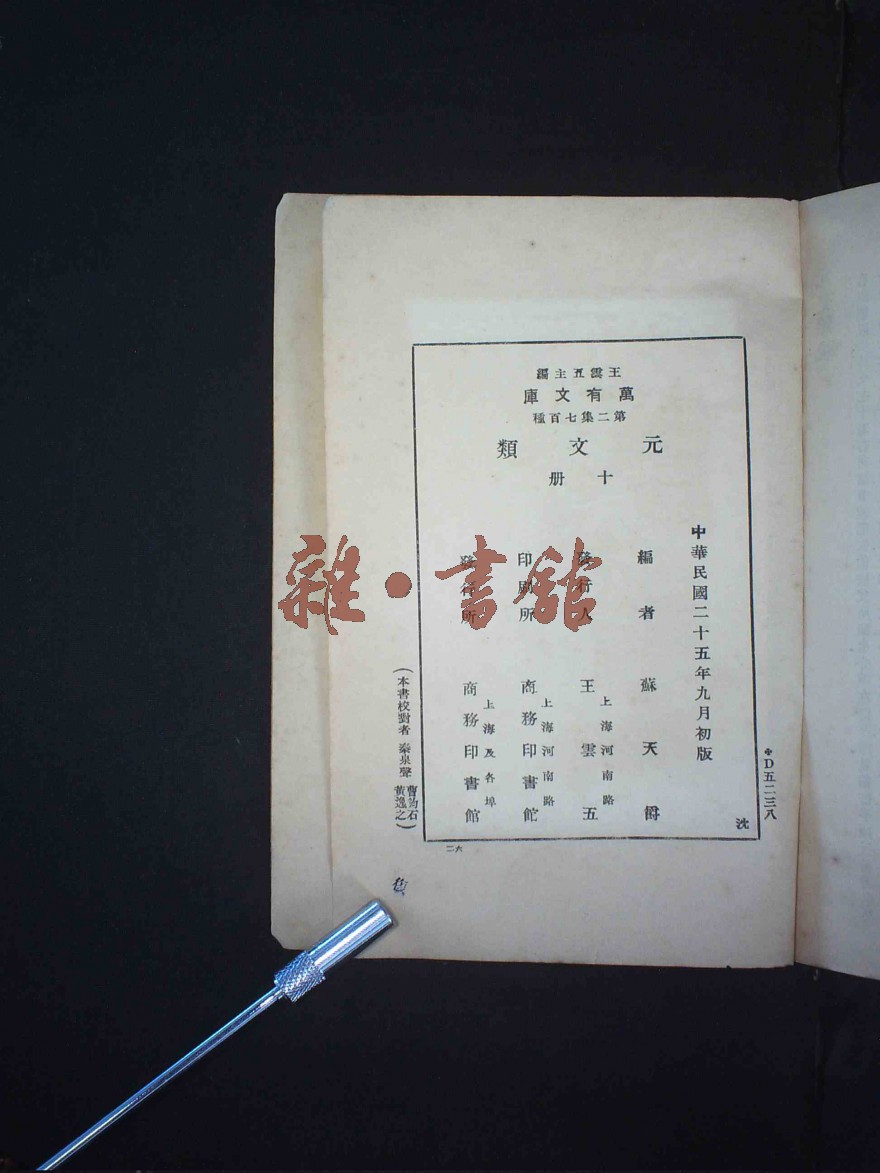 王雲五主編
萬有文庫
第二集七百種
元文類
十册
中華民國二十五年九月初版
編者 蘇天爵
發行人 王雲五
上海河南路
印刷所 商務印書館
上海河南路
發行所 商務印書館
上海及各埠
（本書校對者 秦泉聲 曹鈞石 黃逸之）
＊D五二三八
沈
二六
雜·書館